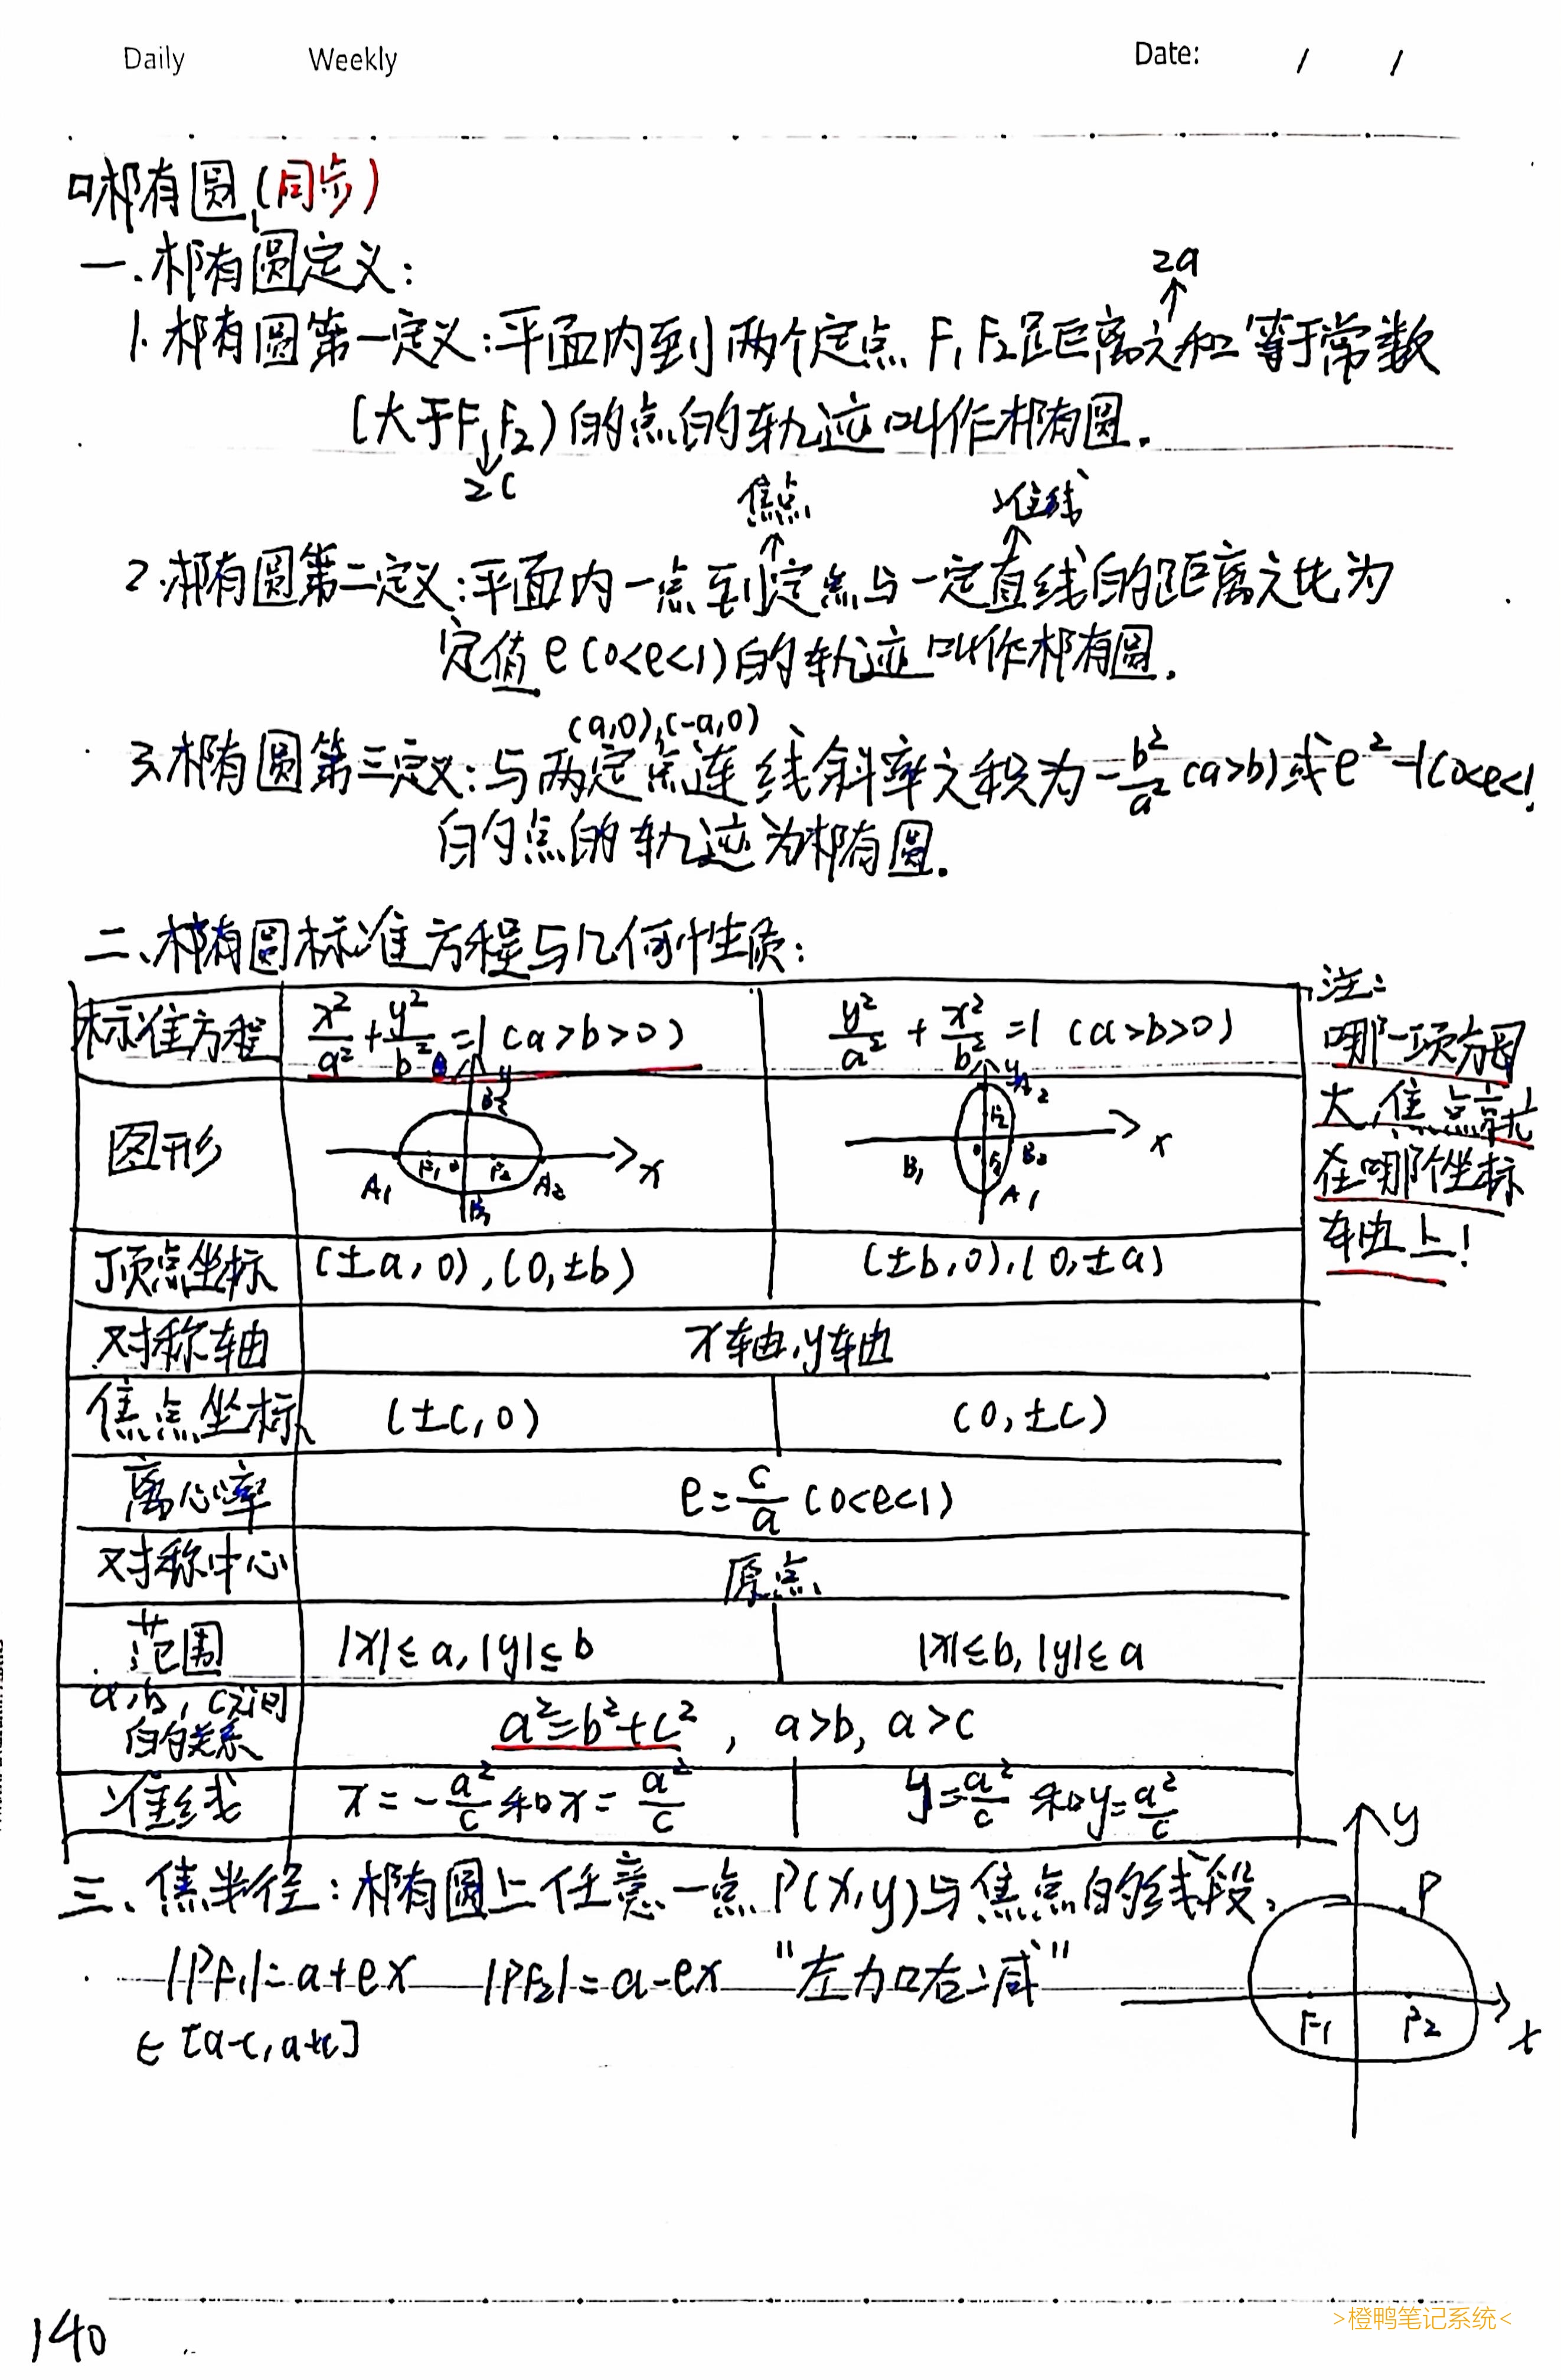 Daily Weekly Date: / /
口椭圆(同步)
一.椭圆定义:
2a
1.椭圆第一定义:平面内到两个定点F₁F₂距离之和等于常数
(大于F₁F₂)的点的轨迹叫作椭圆.
2c
焦点 准线
2.椭圆第二定义:平面内一点到定点与一定直线的距离之比为
定值e(0<e<1)的轨迹叫作椭圆.
(a,0),(-a,0)
3.椭圆第三定义:与两定点连线斜率之积为-b²/a²(a>b)或e²-1(0<e<1)
的点的轨迹为椭圆.
二、椭圆标准方程与几何性质:
标准方程 x²/a²+y²/b²=1(a>b>0) y²/a²+x²/b²=1(a>b>0)
图形
y B₂ A₁ F₁ 0 F₂ A₂ B₁ x
y A₂ F₂ B₁ 0 F₁ B₂ A₁ x
顶点坐标 (±a,0),(0,±b) (±b,0),(0,±a)
对称轴 x轴,y轴
焦点坐标 (±c,0) (0,±c)
离心率 e=c/a(0<e<1)
对称中心 原点
范围 |x|≤a,|y|≤b |x|≤b,|y|≤a
a,b,c之间
的关系 a²=b²+c², a>b, a>c
准线 x=-a²/c和x=a²/c y=a²/c和y=a²/c
注:
哪一项分母
大,焦点就
在哪个坐标
轴上!
三、焦半径:椭圆上任意一点P(x,y)与焦点的线段,
|PF₁|=a+ex |PF₂|=a-ex "左加右减"
∈[a-c,a+c]
y
P
F₁ F₂ x
140
>橙鸭笔记系统<